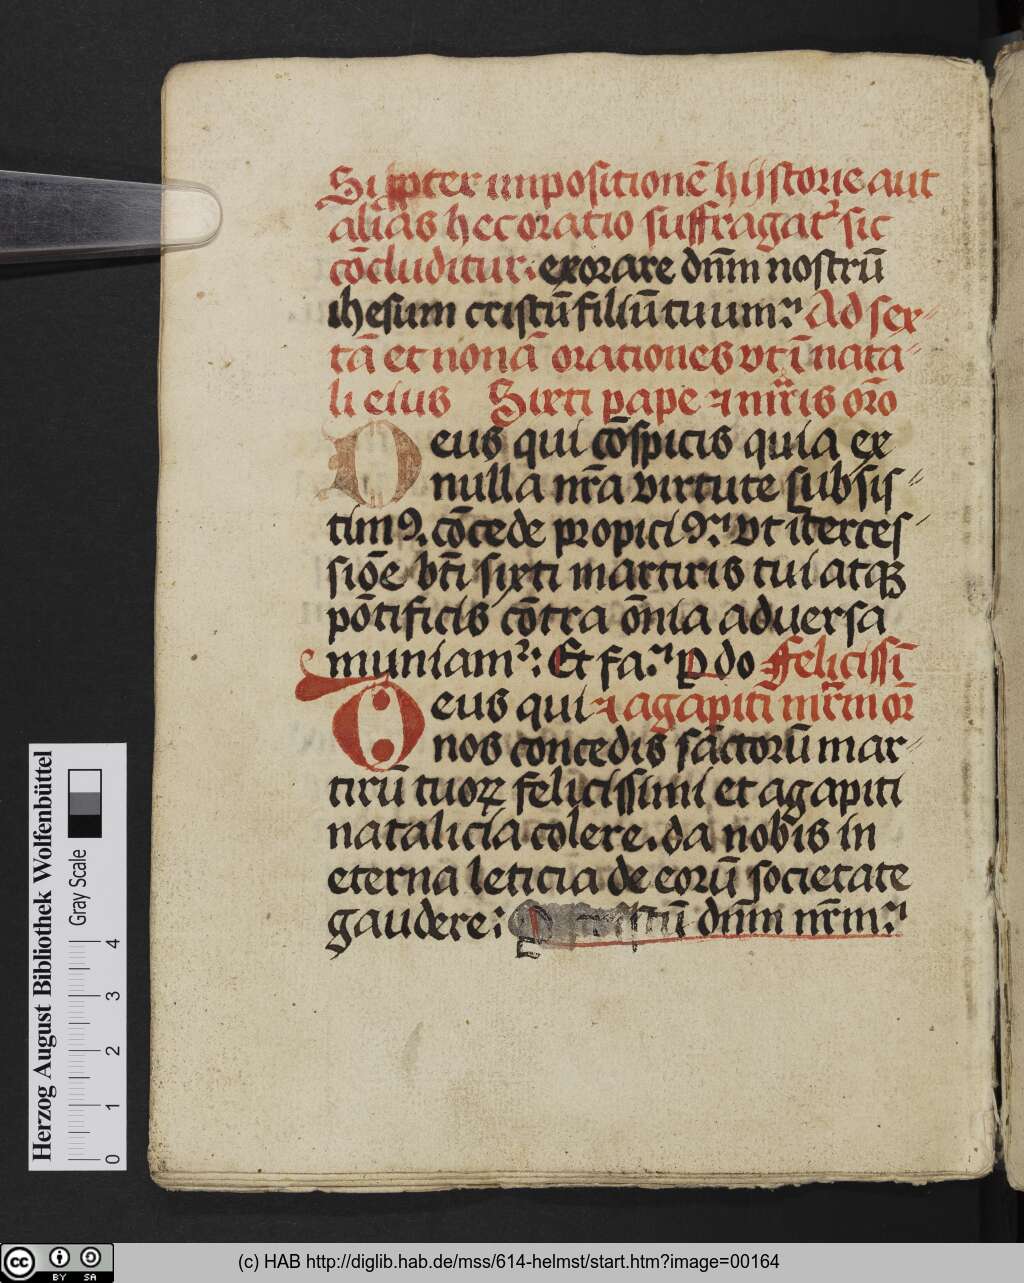 Si ppter impositionē hijstorie aut
alias hec oratio suffragat᷒ sic
cōcluditur. exorare dn̄m nostrū
ihesum cristū filiū tuum: Ad sex-
tā et nonā orationes vt ī nata-
li eius Sixti pape ⁊ mr̄is oro
Deus qui cōspicis quia ex
nulla nr̄a virtute subsis-
timꝯ. cōcede propiciꝯ: vt īterces-
siōe bt̄i sixti martiris tui atqꝫ
pōtificis cōtra ōnia adversa
muniam᷒: Et fa: P do Felicissī
Deus qui ⁊ agapiti mr̄m or̄
nos concedis sāctorū mar-
tirū tuoꝝ felicissimi et agapiti
natalicia colere. da nobis in
eterna leticia de eorū societate
gaudere: stū dn̄m nr̄m:
Herzog August Bibliothek Wolfenbüttel
Gray Scale
0 1 2 3 4
cc BY SA
(c) HAB http://diglib.hab.de/mss/614-helmst/start.htm?image=00164